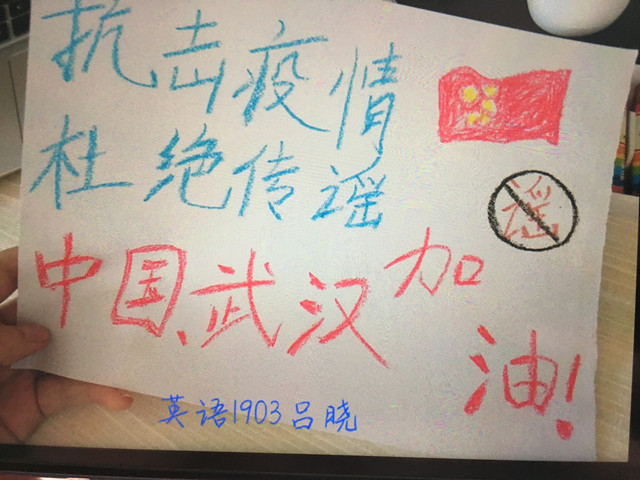 抗击疫情
杜绝传谣
谣
中国、武汉加油!
英语1903吕晓